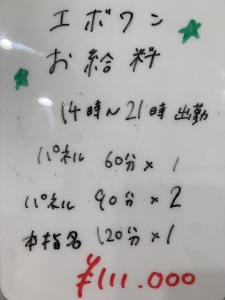 エボワン
お給料
14時～21時 出勤
パネル 60分×1
パネル 90分×2
本指名 120分×1
¥111.000